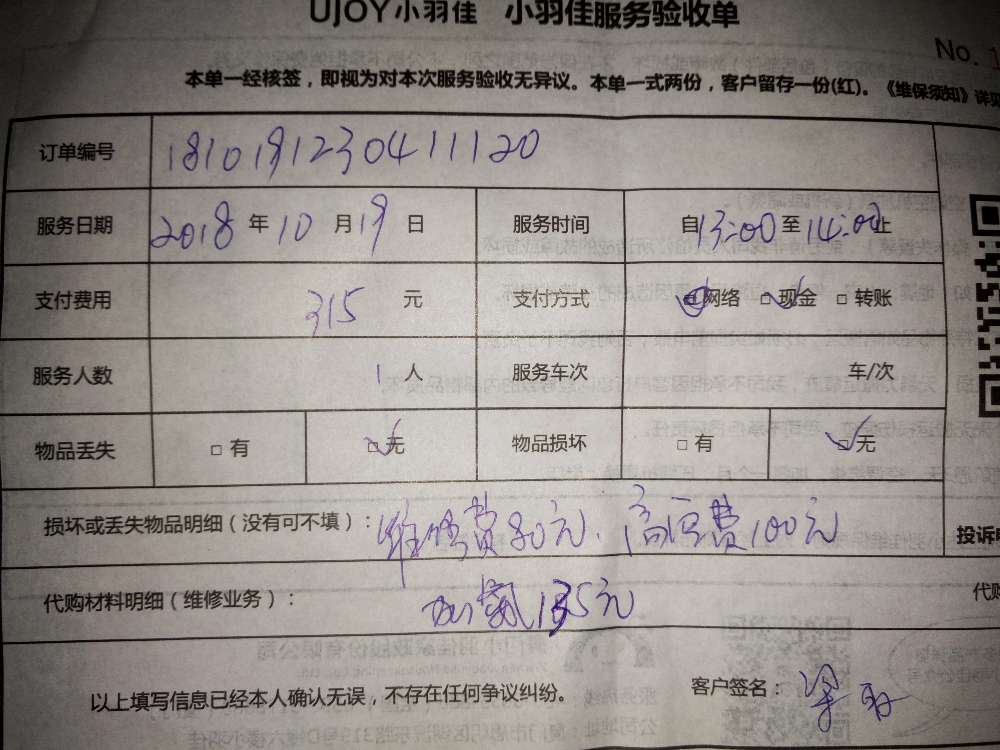 UJOY小羽佳 小羽佳服务验收单
No. 1
本单一经核签，即视为对本次服务验收无异议。本单一式两份，客户留存一份(红)。《维保须知》详
订单编号 1810191230411120
服务日期 2018 年 10 月 19 日 服务时间 自 13:00 至 14:00 止
支付费用 315 元 支付方式 ☑网络 ☑现金 □转账
服务人数 1 人 服务车次 车/次
物品丢失 □有 ☑无 物品损坏 □有 ☑无
损坏或丢失物品明细（没有可不填）：维修费80元、高空费100元
投诉
代购材料明细（维修业务）：加氟135元
代购
以上填写信息已经本人确认无误，不存在任何争议纠纷。 客户签名：梁